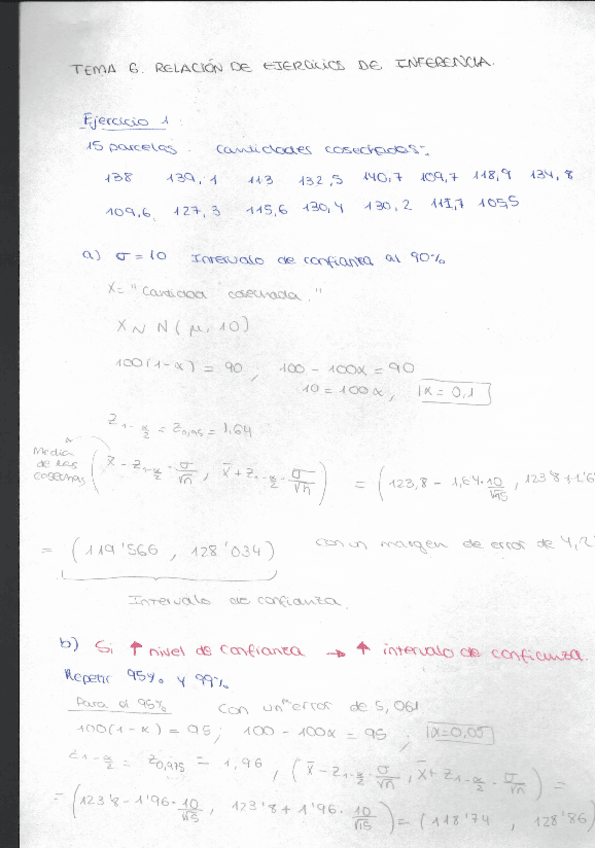 TEMA 6. RELACIÓN DE EJERCICIOS DE INFERENCIA.
Ejercicio 1:
15 parcelas. cantidades cosechadas:
138 139,1 113 132,5 140,7 109,7 118,9 134,8
109,6 127,3 115,6 130,4 130,2 111,7 105,5
a) σ = 10 Intervalo de confianza al 90%
X = "Cantidad cosechada."
X ~ N(μ, 10)
100(1-α) = 90, 100 - 100α = 90
10 = 100α, α = 0,1
Z1-α/2 = Z0,95 = 1,64
Media de las cosechas (x̄ - Z1-α/2 · σ/√n, x̄ + Z1-α/2 · σ/√n) = (123,8 - 1,64 · 10/√15, 123'8 + 1'6
= (119'566, 128'034) con un margen de error de 4,2
Intervalo de confianza.
b) Si ↑ nivel de confianza → ↑ intervalo de confianza.
Repetir 95% y 99%
Para el 95% con un error de 5,061
100(1-α) = 95; 100 - 100α = 95; α = 0,05
Z1-α/2 = Z0,975 = 1,96, (x̄ - Z1-α/2 · σ/√n, x̄ + Z1-α/2 · σ/√n) =
= (123'8 - 1'96 · 10/√15, 123'8 + 1'96 · 10/√15) = (118'74, 128'86)